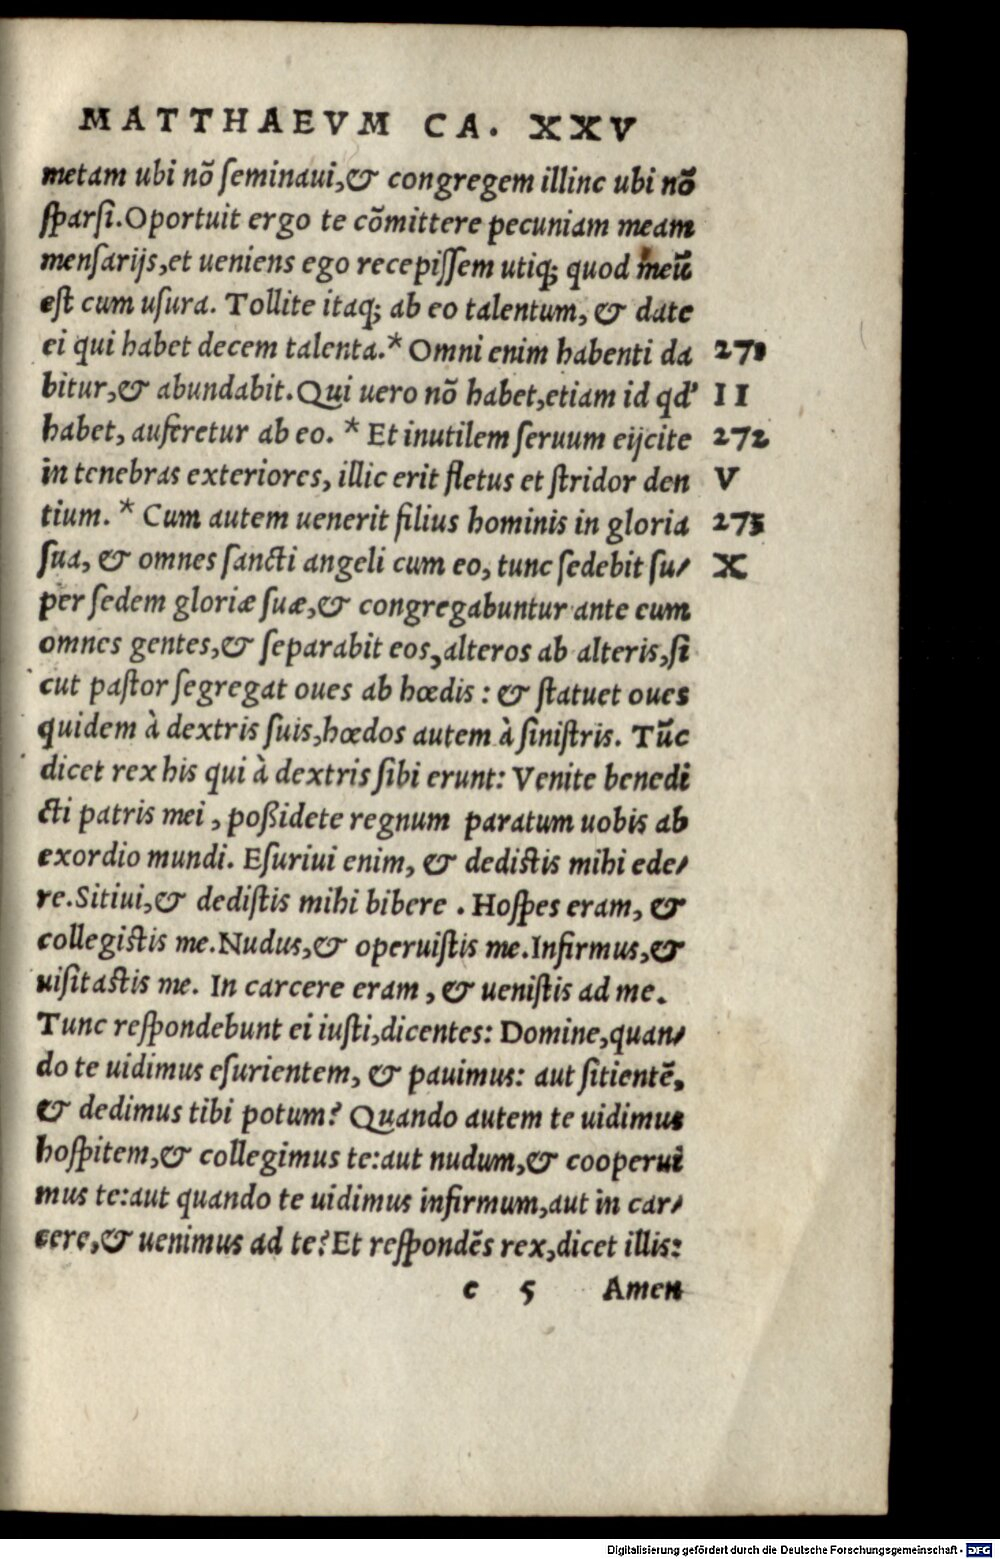 MATTHAEVM CA. XXV
metam ubi nõ ſeminaui,& congregem illinc ubi nõ
ſparſi.Oportuit ergo te cõmittere pecuniam meam
menſarijs,et ueniens ego recepiſſem utiq; quod meũ
eſt cum uſura. Tollite itaq; ab eo talentum, & date
ei qui habet decem talenta.* Omni enim habenti da 271
bitur,& abundabit.Qui uero nõ habet,etiam id qd' II
habet, auferetur ab eo. * Et inutilem ſeruum eijcite 272
in tenebras exteriores, illic erit fletus et ſtridor den V
tium. * Cum autem uenerit filius hominis in gloria 273
ſua, & omnes ſancti angeli cum eo, tunc ſedebit ſu/ X
per ſedem gloriæ ſuæ,& congregabuntur ante eum
omnes gentes,& ſeparabit eos,alteros ab alteris,ſi
cut paſtor ſegregat oues ab hœdis : & ſtatuet oues
quidem à dextris ſuis,hœdos autem à ſiniſtris. Tũc
dicet rex his qui à dextris ſibi erunt: Venite benedi
cti patris mei , poßidete regnum paratum uobis ab
exordio mundi. Eſuriui enim, & dediſtis mihi ede/
re.Sitiui,& dediſtis mihi bibere . Hoſpes eram, &
collegiſtis me.Nudus,& operuiſtis me.Infirmus,&
uiſitaſtis me. In carcere eram , & ueniſtis ad me.
Tunc reſpondebunt ei iuſti,dicentes: Domine,quan/
do te uidimus eſurientem, & pauimus: aut ſitientẽ,
& dedimus tibi potum? Quando autem te uidimus
hoſpitem,& collegimus te:aut nudum,& cooperui
mus te:aut quando te uidimus infirmum,aut in car/
cere,& uenimus ad te? Et reſpondẽs rex,dicet illis:
e 5 Amen
Digitalisierung gefördert durch die Deutsche Forschungsgemeinschaft - DFG